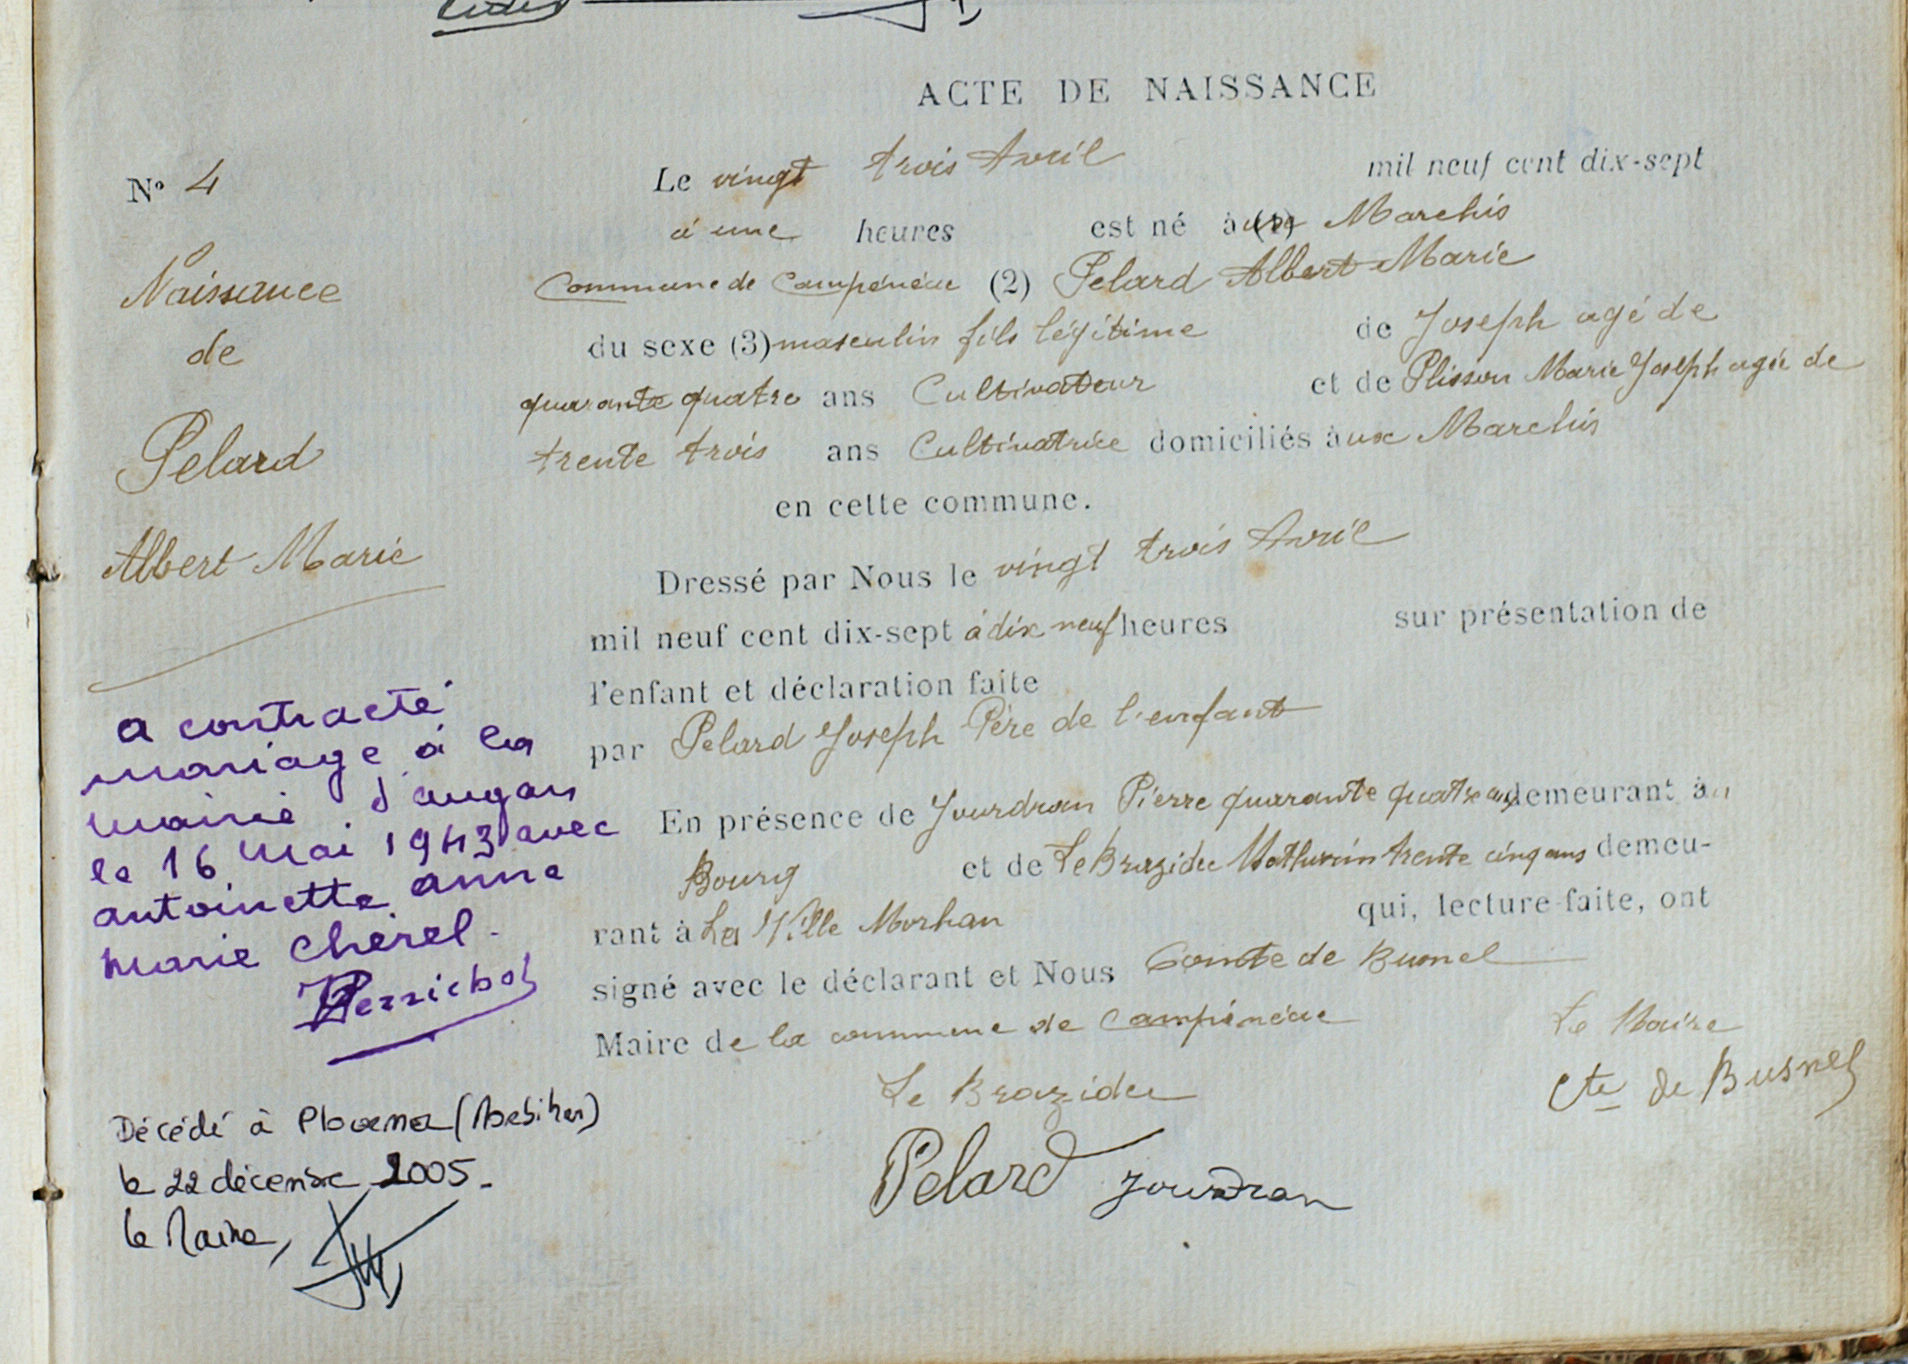 ACTE DE NAISSANCE
N° 4
Naissance
de
Pelard
Albert Marie
a contracté
mariage à la
mairie d'augan
le 16 Mai 1943 avec
antoinette anna
marie chérel.
Perrichot
Décédé à (Morbihan)
le 22 décembre 2005.
le Maire,
Le vingt trois Avril mil neuf cent dix-sept
à une heures est né à aux (1) Marchis
Commune de Campénéac (2) Pelard Albert Marie
du sexe (3) masculin fils légitime de Joseph agé de
quarante quatre ans Cultivateur et de Plisson Marie Joseph agée de
trente trois ans Cultivatrice domiciliés à aux Marchis
en cette commune.
Dressé par Nous le vingt trois Avril
mil neuf cent dix-sept à dix neuf heures sur présentation de
l'enfant et déclaration faite
par Pelard Joseph Père de l'enfant
En présence de Jourdran Pierre quarante quatre ans demeurant au
Bourg et de Le Brazidec Mathurin trente cinq ans demeu-
rant à La Ville Morhan qui, lecture faite, ont
signé avec le déclarant et Nous Comte de Busnel
Maire de la commune de Campénéac
Le Maire
Le Brazidec
Cte de Busnel
Pelard Jourdran